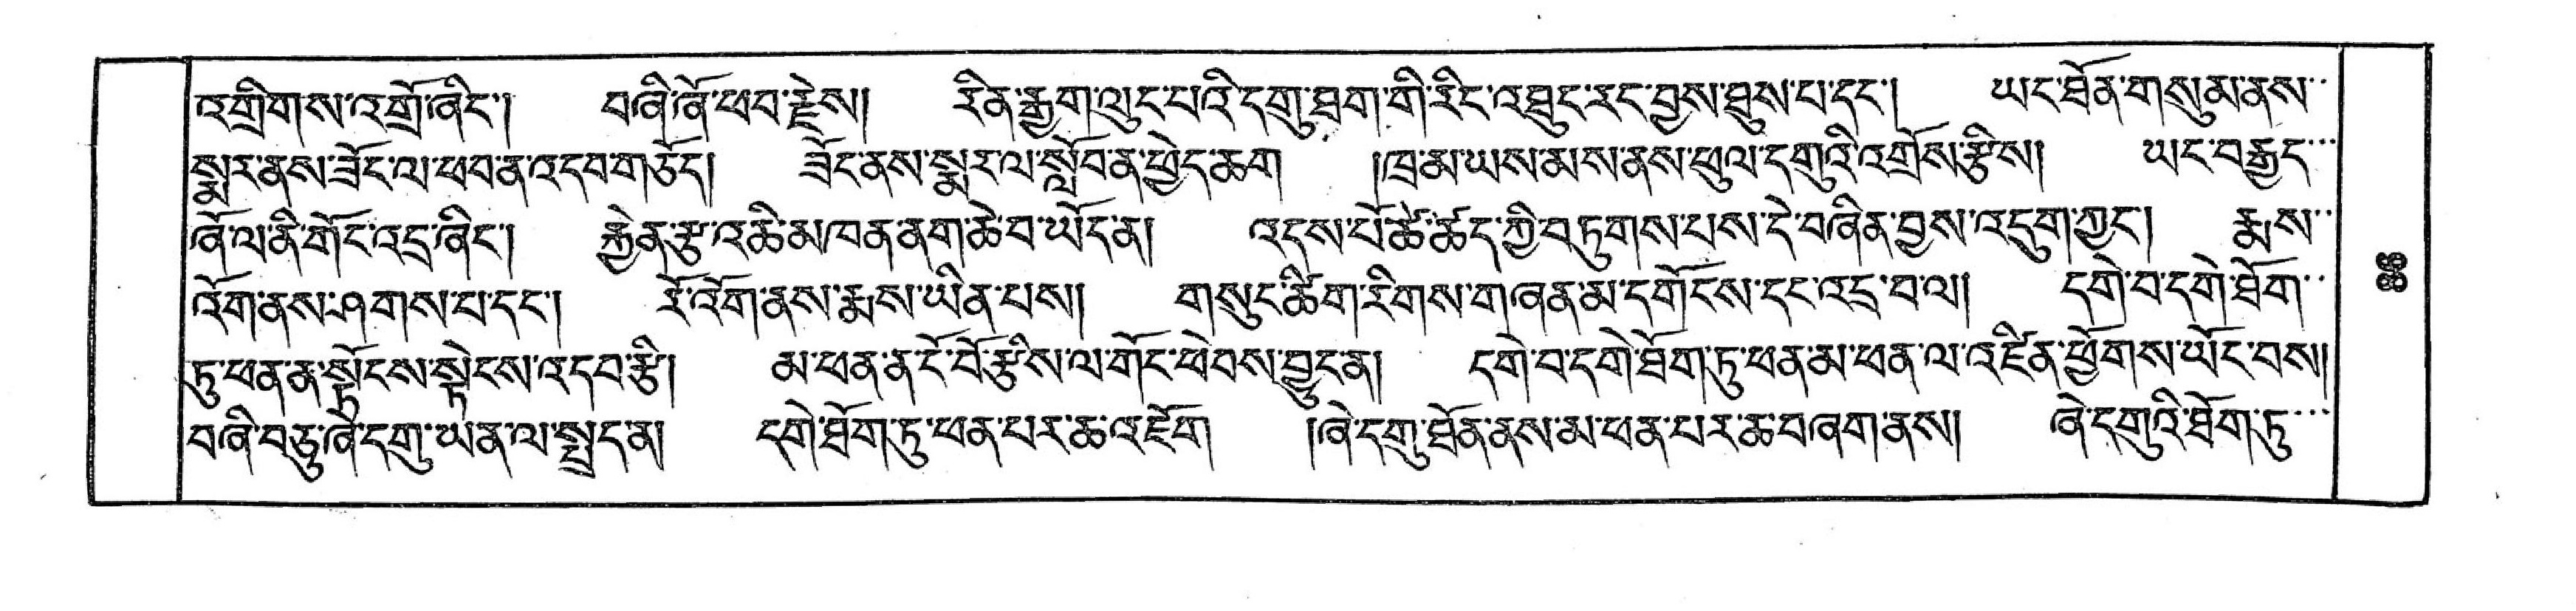 འགྲིགས་འགྲོ་ཞིང་། བཞི་ཞོ་ཕབ་རྗེས། རིན་རྒྱག་ལུང་པའི་དགུ་ཐག་གི་རིང་འཐུང་རང་བྱས་ཐུས་པ་དང་། ཡང་ཐོན་གསུམ་ནས་
སྨར་ནས་ཟོང་ལ་ཕབ་ན་འདབ་གཅོད། ཟོང་ནས་སྨར་ལ་སློབ་ན་ཕྱེད་ཆག །ཁྲ་མ་ཡས་མས་ནས་ཕུལ་དགུའི་འགྲོས་རྩིས། ཡང་བརྒྱད་
ཞོ་ལ་ནི་གོང་འདྲ་ཞིང་། རྐྱེན་རྩ་འཆི་མཁན་ནག་ཆེ་བ་ཡོད་ན། འདས་པོ་ཚོ་ཚད་ཀྱི་བཏུགས་པས་དེ་བཞིན་བྱས་འདུག་ཀྱང་། རྨས་
འོག་ནས་ཤགས་པ་དང་། རོ་འོག་ནས་རྨས་ཡིན་པས། གསུང་ཚིག་རིགས་གཞན་མ་དགོངས་དང་འདྲ་བ་ལ། དགེ་བ་དགེ་ཐོག་
ཏུ་ཕན་ན་སྟོངས་སྟེངས་འདབ་རྩི། མ་ཕན་ན་ངོ་བོ་རྩིས་ལ་གོང་ཕེབས་བྱུང་ན། དགེ་བ་དགེ་ཐོག་ཏུ་ཕན་མ་ཕན་ལ་འཛིན་ཕྱོགས་ཡོང་བས།
བཞི་བཅུ་ཞེ་དགུ་ཡན་ལ་སྤྲད་ན། དགེ་ཐོག་ཏུ་ཕན་པར་ཆ་འཇོག །ཞེ་དགུ་ཐོན་ནས་མ་ཕན་པར་ཆ་བཞག་ནས། ཞེ་དགུའི་ཐོག་ཏུ་